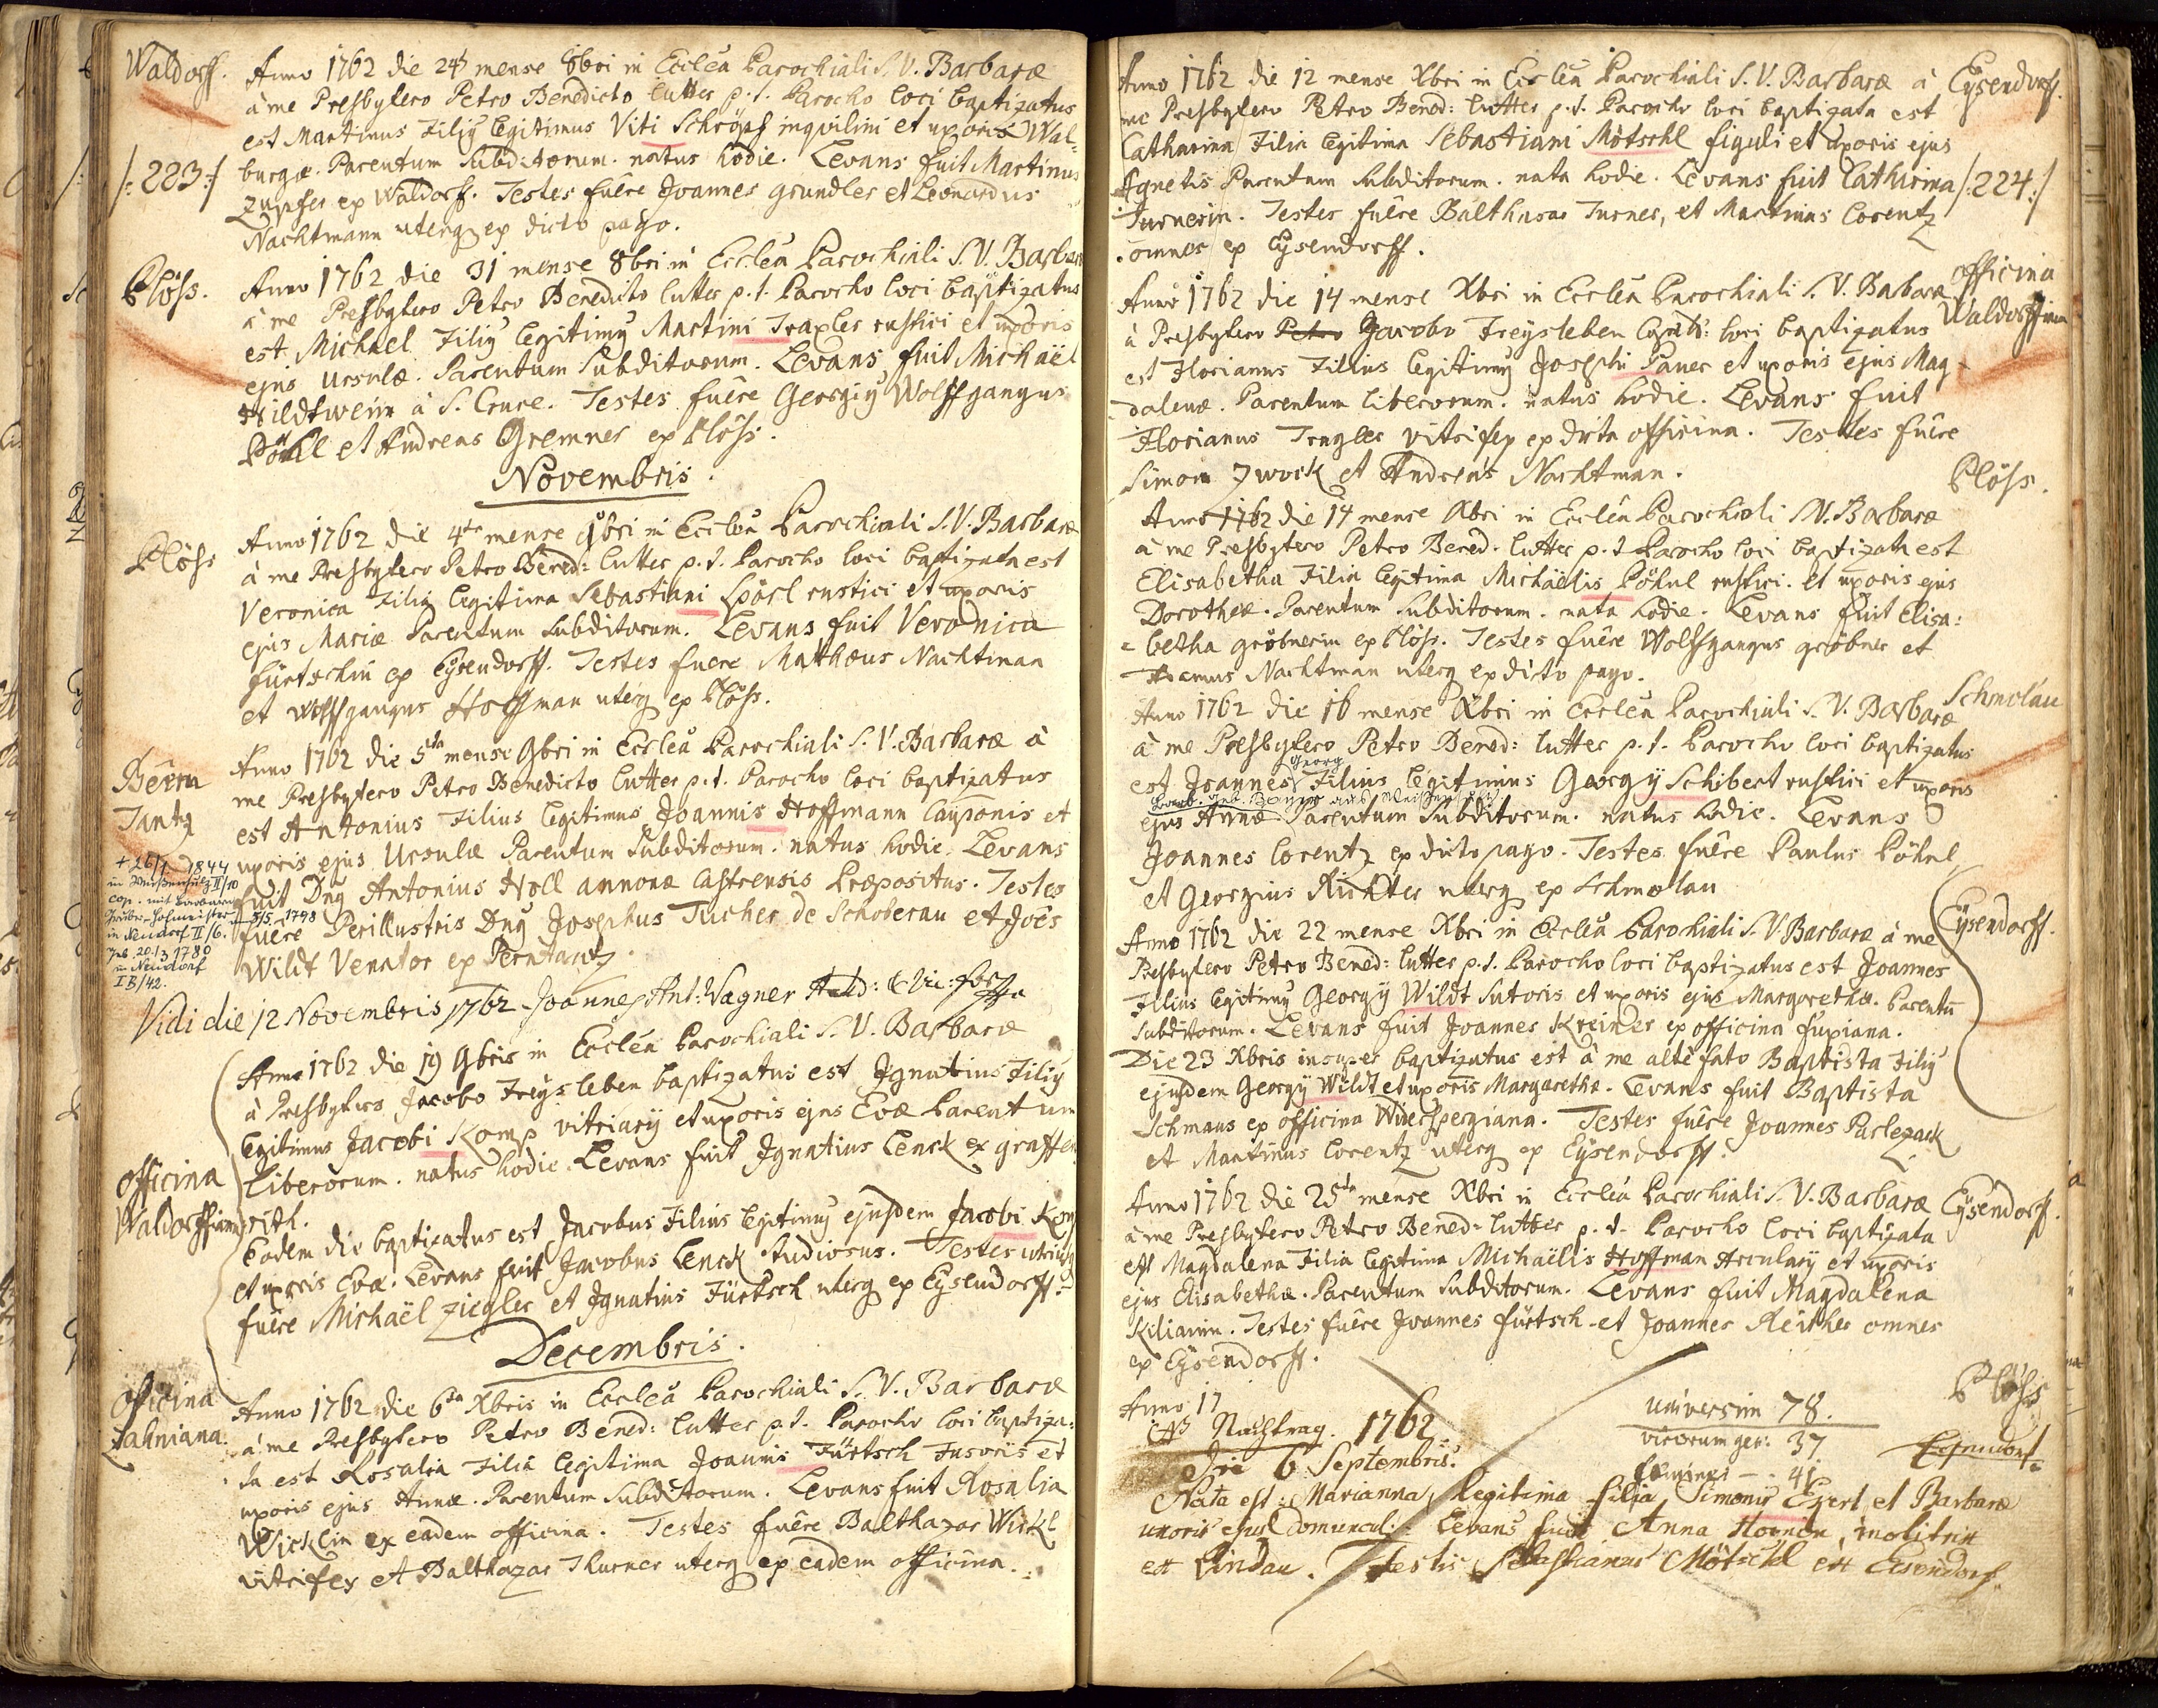 Waldorf.
Anno 1762 die 24 mense 8bri in Ecclea Parochiali S. V. Barbaræ
à me Presbytero Petro Benedicto Lutter p. t. Parocho loci baptizatus
est Martinus Filiÿ legitimus Viti Schröpf inquilini et uxoris Wal=
burgæ. Parentum Subditorum. natus hodie. Levans fuit Martinus
/: 223 :/
Zupfer ex Waldorf. Testes fuêre Joannes Grundler et Leonardus
Nachtmann uterq ex dicto pago.
Plöss.
Anno 1762 die 31 mense 8bri in Ecclea Parochiali S. V. Barbar
à me Presbytero Petro Benedicto Lutter p. t. Parocho loci baptizatus
est Michael Filiÿ legitimÿ Martini Traxler rustici et uxoris
ejus Ursulæ. Parentum Subditorum. Levans fuit Michaël
Hildtwein à S. Cruce. Testes fuêre Georgiÿ Wolffgangus
Pöhl et Andreas Gremner ex Plöss.
Novembris.
Plöss
Anno 1762 die 4ta mense 9bri in Ecclea Parochiali S. V. Barbaræ
à me Presbytero Petro Bened: Lutter p. t. Parocho loci baptizata est
Veronica Filia legitima Sebastiani Spörl rustici et uxoris
ejus Mariæ Parentum Subditorum. Levans fuit Veronica
Fürtschin ex Eÿsendorff. Testes fuere Matthæus Nachtman
et Wolffgangus Hoffman uterq ex Plöss.
Berra
Tantz
Anno 1762 die 5ta mense 9bri in Ecclea Parochiali S. V. Barbaræ à
me Presbytero Petro Benedicto Lutter p. t. Parocho loci baptizatus
est Antonius Filius legitimus Joannis Hoffmann Cauponis et
uxoris ejus Ursulæ Parentum Subditorum. natus hodie. Levans
fuit Dnÿ Antonius Noll annonæ Castrensis Præpositus. Testes
fuêre Perillustris Dnÿ Josephus Tucher de Schoberau et Joês
Wildt Venator ex Perntantz.
+ 26/1 1844
in Weißensulz II/10
cop. mit Barbara
Gruber-Hofmeister
in Neudorf II/6. 8/5 1798
geb 20.13 1780
in Neudorf
I B/42.
Vidi die 12 Novembris 1762 Joannes Ant: Wagner
Anno 1762 die 19 9bris in Ecclea Parochiali S. V. Barbaræ
à Presbytero Jacobo Freÿsleben baptizatus est Ignatius Filiÿ
legitimus Jacobi Komp vitriarÿ et uxoris ejus Evæ Parentum
liberorum. natus hodie. Levans fuit Ignatius Lenck ex graffen
officina
Waldorffiana
rith.
Eadem die baptizatus est Jacobus Filius legitimÿ ejusdem Jacobi Kom
et uxoris Evæ. Levans fuit Jacobus Lenck studiosus. Testes utriusq
fuêre Michaël Ziegler et Ignatius Fürtsch uterq ex Eÿsendorff.
Decembris.
officina
Fahniana.
Anno 1762 die 6ta Xbris in Ecclea Parochiali S. V. Barbaræ
à me Presbytero Petro Bened: Lutter p. t. Parocho loci baptiza:
ta est Rosalia Filia legitima Joannis Fürtsch Fusoris et
uxoris ejus Annæ. Parentum Subditorum. Levans fuit Rosalia
Wicklin ex eadem officina. Testes fuêre Balthazar Wickl
vitrifex et Balthazar Thurner uterq ex eadem officina.
Anno 1762 die 12 mense Xbri in Ecclea Parochiali S. V. Barbaræ à
Eÿsendorff.
me Presbytero Petro Bened: Lutter p. t. Parocho loci baptizata est
Catharina Filia legitima Sebastiani Mötschl figuli et uxoris ejus
Agnetis Parentum Subditorum. nata hodie. Levans fuit Catharina
/: 224 :/
Turnerin. Testes fuêre Balthasar Turner, et Martinus Lorentz
omnes ex Eÿsendorff.
officina
Waldorffiana
Anno 1762 die 14 mense Xbri in Ecclea Parochiali S. V. Babaræ
à Presbytero Petro Jacobo Freÿsleben loci baptizatus
est Florianus Filius legitimÿ Josephi Paner et uxoris ejus Mag
dalenæ. Parentum liberorum. natus hodie. Levans fuit
Florianus Trngler vitrifex ex dicta officina. Testes fuêre
Simon Zwock et Andreas Nachtman.
Plöss.
Anno 1762 die 14 mense Xbri in Ecclea Parochiali S. V. Barbaræ
à me Presbytero Petro Bened. Lutter p. t. Parocho loci baptizata est
Elisabetha Filia legitima Michäelis Pöhnl rustici. et uxoris ejus
Dorotheæ. Parentum Subditorum. nata hodie. Levans fuit Elisa:
betha gröbnerin ex Plöss. Testes fuêre Wolffgangus gröbner et
Nachtman uterq ex dicto pago.
Schmolau
Anno 1762 die 16 mense Xbri in Ecclea Parochiali S. V. Barbaræ
à me Presbytero Petro Bened: Lutter p. t. Parocho loci baptizatus
Georg
est Joannes Filius legitimus Georgÿ Schibert rustici et uxoris
ejus Annæ Parentum Subditorum. natus hodie. Levans
Joannes Lorentz ex dicto pago. Testes fuêre Paulus Pöhnl
et Georgius Richter uterq ex Schmolau
Eÿsendorff.
Anno 1762 die 22 mense Xbri in Ecclea Parochiali S. V. Barbaræ à me
Presbytero Petro Bened: Lutter p. t. Parocho loci baptizatus est Joannes
Filius legitimÿ Georgÿ Wildt Sutoris et uxoris ejus Margarethæ. Parentū
Subditorum. Levans fuit Joannes Kreimer ex officina fuxiana.
Die 23 Xbris insuper baptizatus est à me altefato Baptista Filiÿ
ejusdem Georgÿ Wildt et uxoris Margarethæ. Levans fuit Baptista
Schmaus ex officina Widerspergiana. Testes fuêre Joannes Parlezack
et Martinus Lorentz uterq ex Eÿsendorff.
Anno 1762 die 25ta mense Xbri in Ecclea Parochiali S. V. Barbaræ
Eÿsendorff.
à me Presbytero Petro Bened: Lutter p. t. Parocho loci baptizata
est Magdalena Filia legitima Michaëlis Hoffman Arculary et uxoris
ejus Elisabethæ. Parentum Subditorum. Levans fuit Magdalena
Kilianin. Testes fuêre Joannes Fürtsch et Joannes Reither omnes
ex Eÿsendorff.
Plöss
Anno 17
Nachtrag. 1762
universim 78.
virorum gen: 37
41
Die 6 Septembris.
Eisendorf
Nata est: Marianna legitima filia Simonis Egerl et Barbaræ
uxoris ejus domuncul: Levans fuit Anna molitrix
ex Lindau. Testis Sebastianus Mötschl ex Eisendorf.